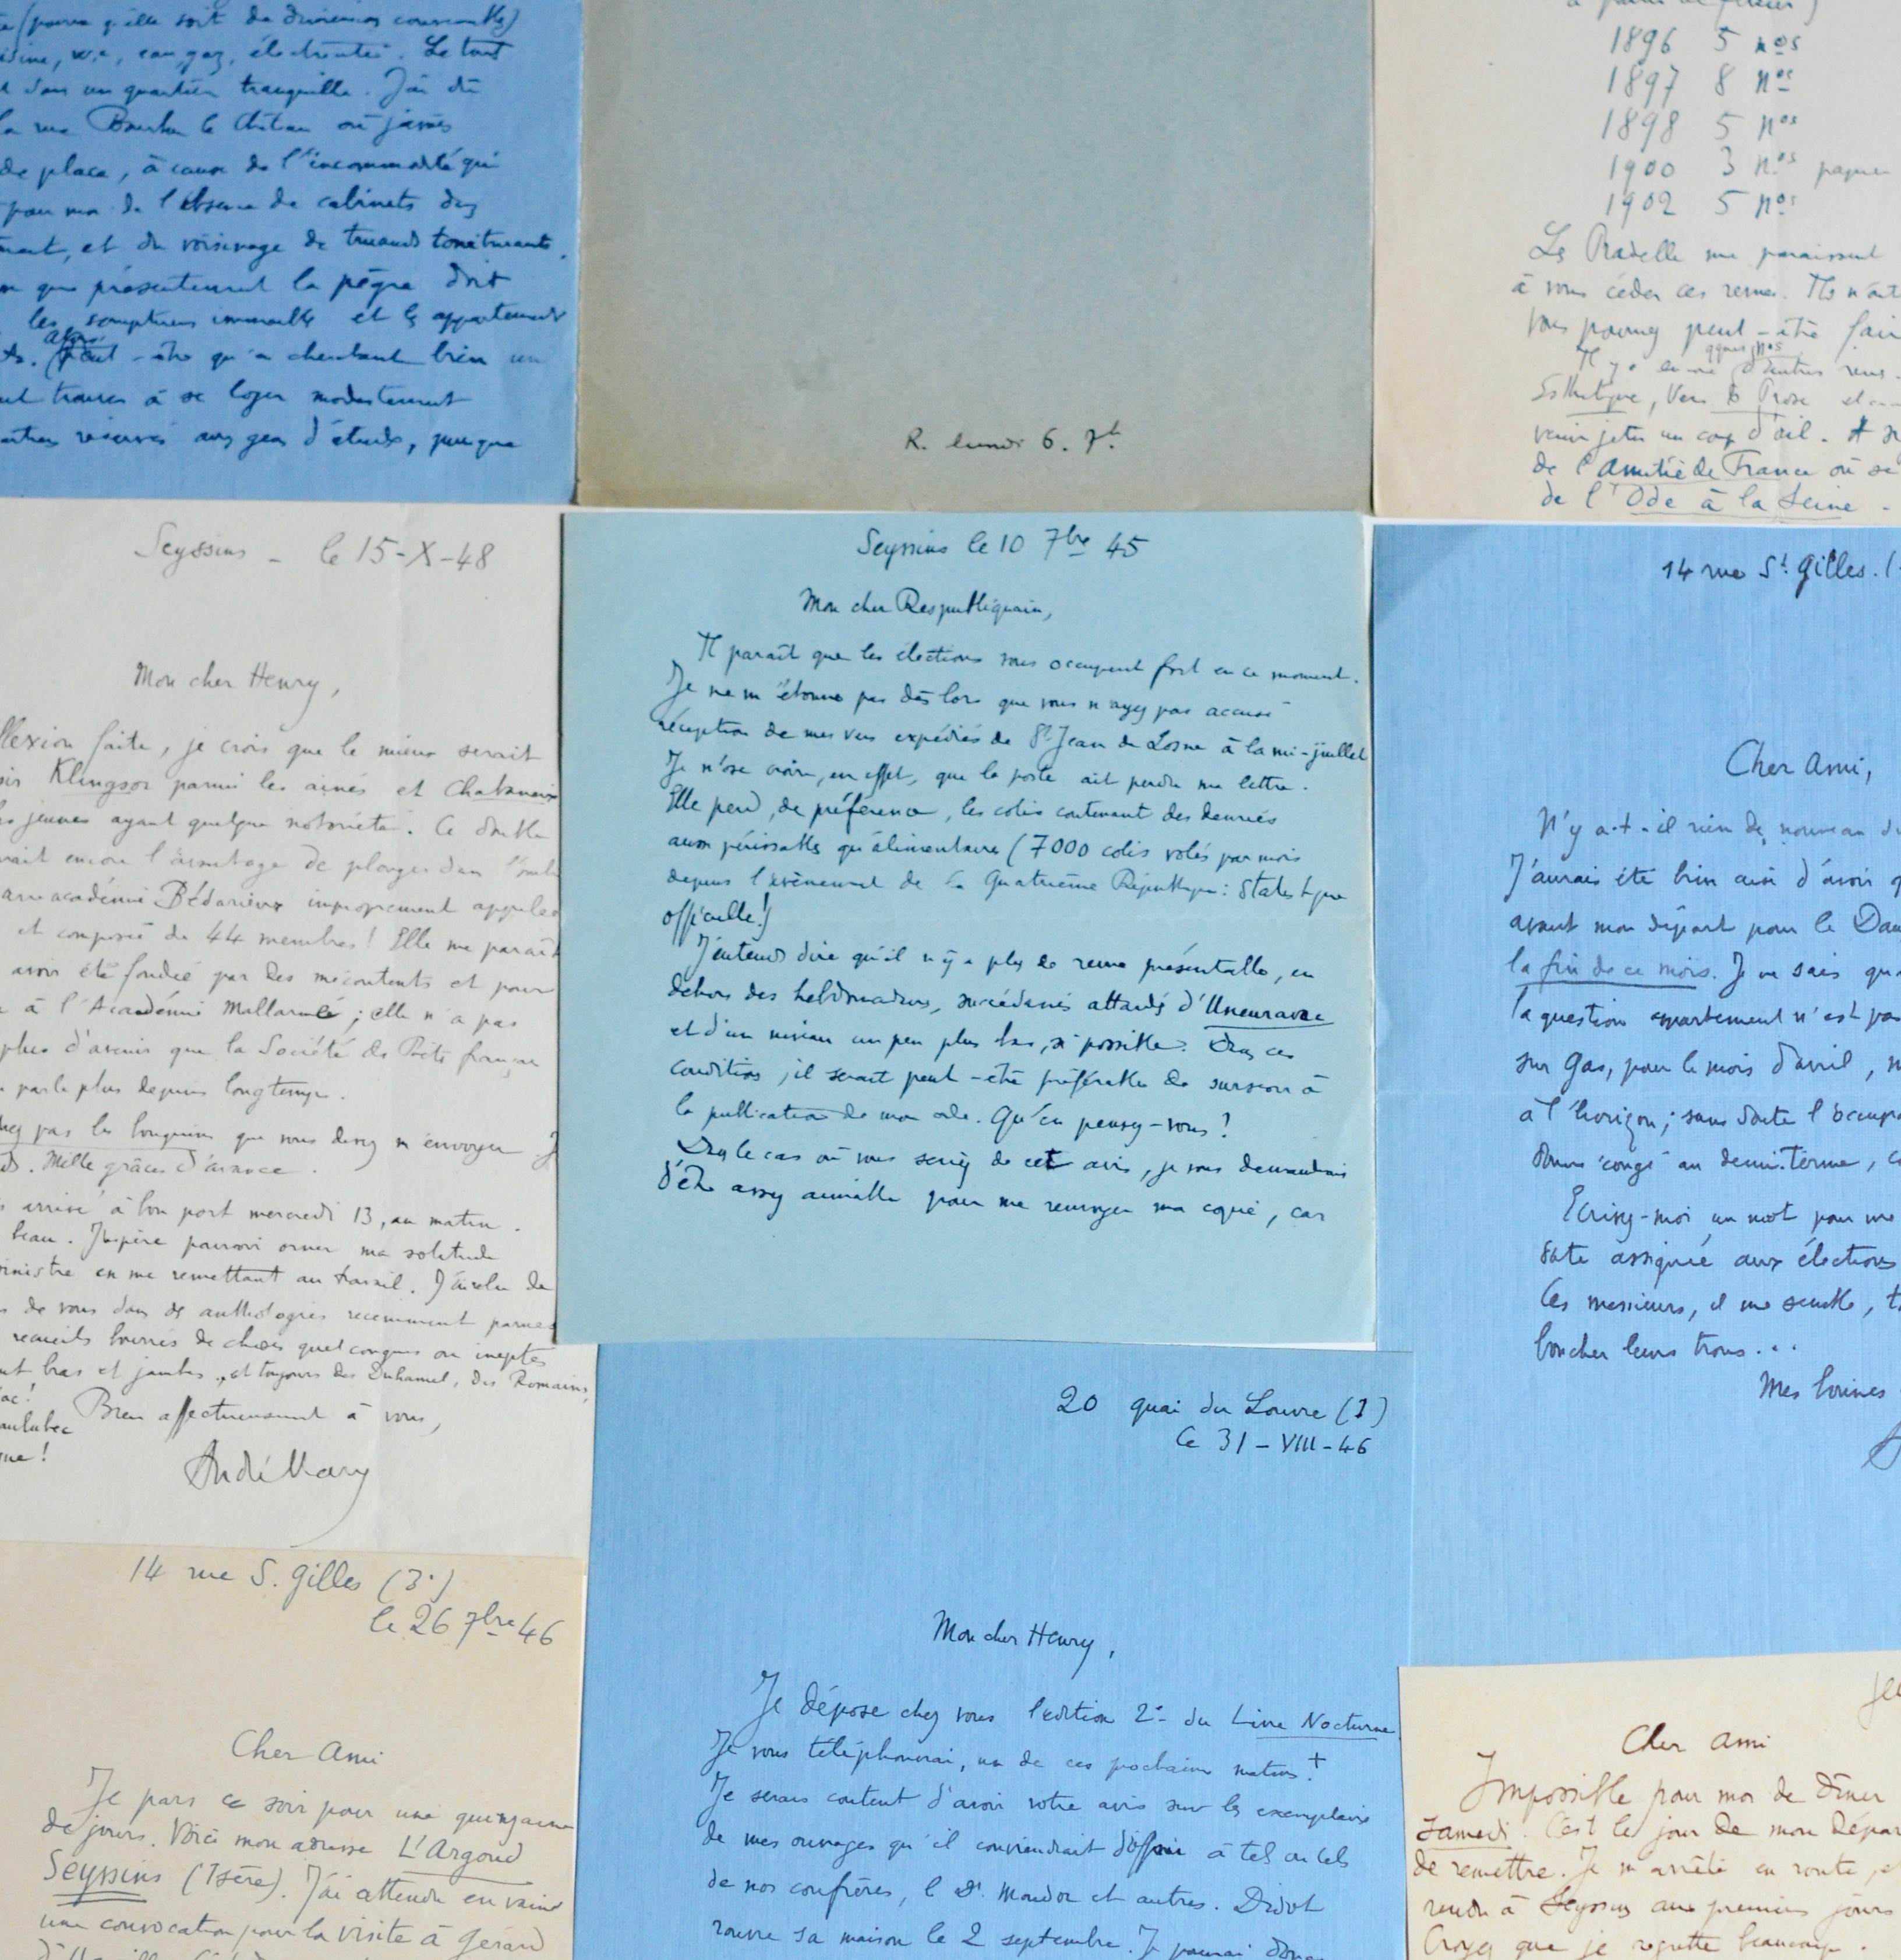 (pourvu qu'elle soit de dimensions convenables)
w.c., eau, gaz, électricité. Le tout
dans un quartier tranquille. J'ai dû
la rue Bourbon le Château où j'avais
de place, à cause de l'incommodité qui
pour moi de l'absence de cabinets
et du voisinage de truands tonitruants.
que présentement la pègre doit
les somptueux immeubles et les appartements
alors
Peut-être qu'en cherchant bien un
trouver à se loger modestement
réservés aux gens d'étude, puisque
R. lundi 6. 7h
1896 5 nos
1897 8 nos
1898 5 nos
1900 3 nos
1902 5 nos
Les Pradelle me paraissent
à vous céder ces revues. Ils n'ont
Vous pourrez peut-être
qques nos
Il y a d'autres
Esthétique, Vers & Prose
venir jeter un coup d'œil.
de l'Amitié de France où se
de l'Ode à la Seine -
Seyssins - le 15-X-48
Mon cher Henry,
faite, je crois que le mieux serait
Klingsor parmi les aînés et Chabaneix
jeunes ayant quelque notoriété. Ce double
encore l'avantage de plonger dans
Bédarieux improprement appelée
et composée de 44 membres! Elle me paraît
avoir été fondée par des mécontents et pour
à l'Académie Mallarmé; elle n'a pas
plus d'avenir que la Société des Poètes français
parle plus depuis longtemps.
pas les bouquins que vous devez m'envoyer
Mille grâces d'avance.
arrivé à bon port mercredi 13, au matin.
beau. J'espère pouvoir orner ma solitude
en me remettant au travail. J'ai relu de
de vous dans des anthologies récemment parues
recueils bourrés de choses quelconques ou ineptes
bras et jambes, et toujours des Duhamel, des Romains,
Bien affectueusement à vous,
André Mary
Seyssins le 10 7bre 45
Mon cher Respubliquain,
Il paraît que les élections vous occupent fort en ce moment.
Je ne m'étonne pas dès lors que vous n'ayez pas accusé
réception de mes vers expédiés de St Jean de Losne à la mi-juillet
Je n'ose croire, en effet, que la poste ait perdu ma lettre.
Elle perd, de préférence, les colis contenant des denrées
aussi périssables qu'alimentaires (7000 colis volés par mois
depuis l'avènement de la Quatrième République: statistique
officielle!)
J'entends dire qu'il n'y a plus de revue présentable, en
dehors des hebdomadaires, succédanés attardés d'Uneuravae
et d'un niveau un peu plus bas, si possible. Dans ces
conditions, il serait peut-être préférable de surseoir à
la publication de mon ode. Qu'en pensez-vous?
Dans le cas où vous seriez de cet avis, je vous demanderais
d'être assez aimable pour me renvoyer ma copie, car
14 rue St. Gilles.
Cher Ami,
N'y a-t-il rien de nouveau
J'aurais été bien aise d'avoir
avant mon départ pour le
la fin de ce mois. Je ne sais
la question appartement n'est pas
sur Gas, pour le mois d'avril,
à l'horizon; sans doute
donné congé au demi-terme,
Ecrivez-moi un mot pour me
date assignée aux élections
Ces messieurs, il me semble,
boucher leurs trous...
Mes bonnes
14 rue S. Gilles (3e)
le 26 7bre 46
Cher Ami
Je pars ce soir pour une quinzaine
de jours. Voici mon adresse L'Argoud
Seyssins (Isère). J'ai attendu en vain
une convocation pour la visite à Gérard
20 quai du Louvre (1)
Ce 31-VIII-46
Mon cher Henry,
Je dépose chez vous l'édition 2e du Livre Nocturne
Je vous téléphonerai, un de ces prochains matins. +
Je serais content d'avoir votre avis sur les exemplaires
de mes ouvrages qu'il conviendrait d'offrir à tel ou tels
de nos confrères, le Dr. Mondor et autres. Didot
rouvre sa maison le 2 septembre. Je pourrai donc
Cher Ami
Impossible pour moi de dîner
samedi. C'est le jour de mon
de remettre. Je m'arrête en route,
rendu à Seyssins aux premiers jours
Croyez que je regrette beaucoup.